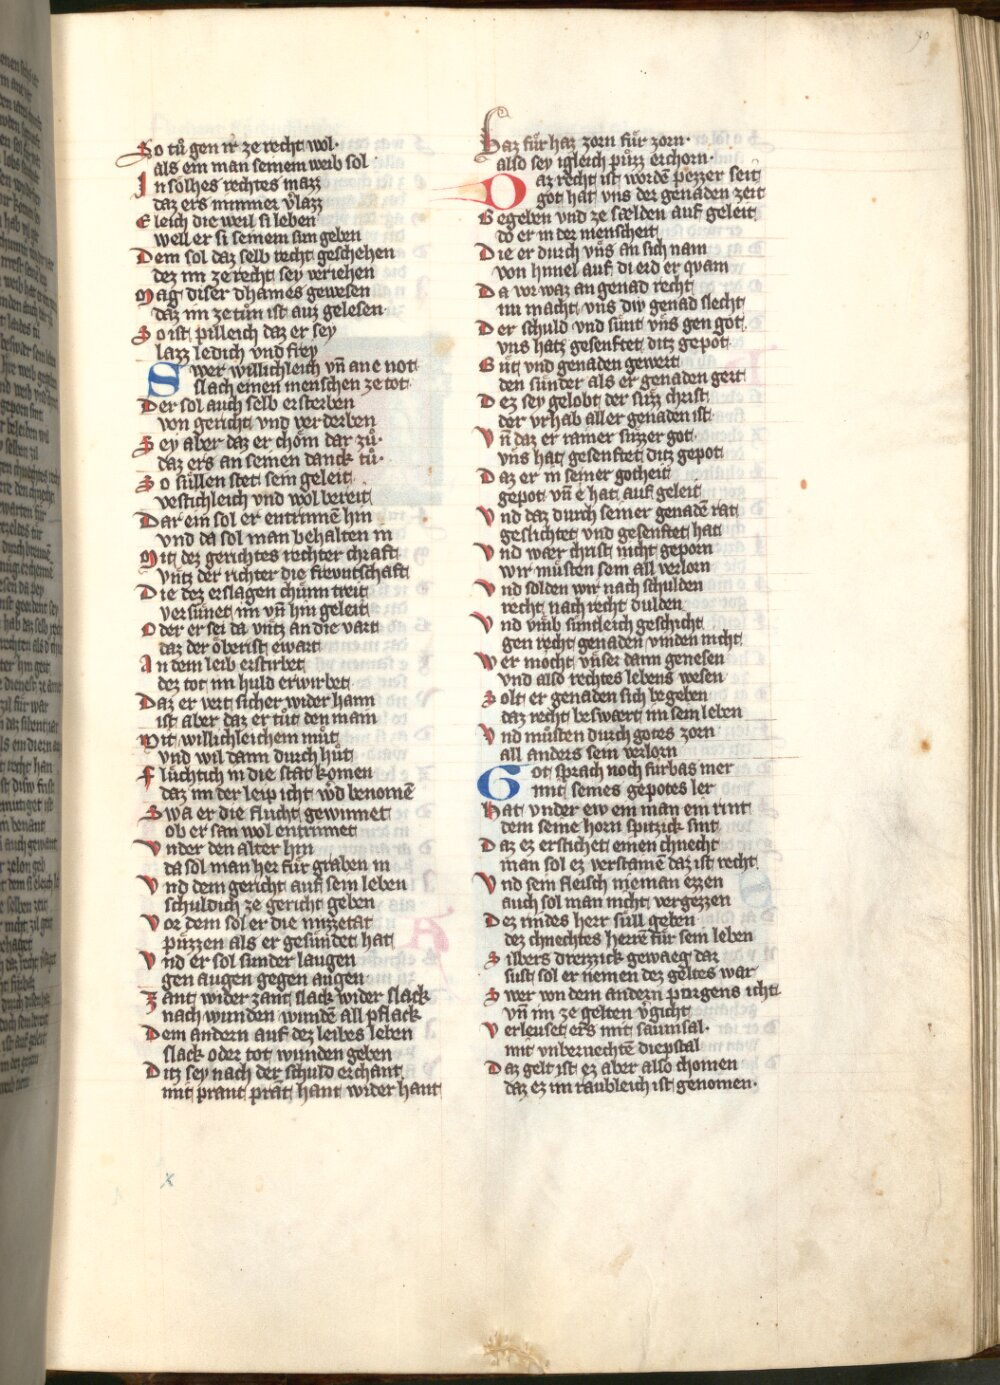 So tuͦ gen ir ze recht wol·
als ein man seinem weib sol·
In soͤlhes rechtes mazz
daz ers nimmer vͤlazz
Eleich die weil si leben
well er si seinem sun geben
Dem sol daz selb recht geschehen
dez im ze recht sey veriehen
Mag diser dhaines gewesen
daz im ze tuͤn ist auz gelesen·
So ist pilleich daz er sey
lazz ledich vnd frey
Swer willichleich vn̄ ane not
slach einen menschen ze tot·
Der sol auch selb ersterben
von gericht vnd verderben
Sey aber daz er choͤm dar zuͦ·
daz ers an seinen danck tuͦ·
So suͤllen stet sein geleit
vestichleich vnd wol bereit
Dar ein sol er entrinnē hin
vnd da sol man behalten in
Mit dez gerichtes rechter chraft
vntz der richter die frevntschaft
Die dez erslagen chuͤnn treit
versuͤnet im vn̄ hin geleit
Oder er sei da vntz an die vart
daz der oͤberist ewart
An dem leib erstirbet
dez tot im huld erwirbet·
Daz er vert sicher wider haim
ist aber daz er tuͤt den main
Mit willichleichem muͤt
vnd wil dann durch huͤt
Fluͤchtich in die stat komen
daz im der leip icht wͤd benomē
Swa er die flucht gewinnet
ob er san wol entrinnet
Vnder den alter hin
da sol man her fuͤr graben in
Vnd dem gericht auf sein leben
schuldich ze gericht geben
Vor dem sol er die missetat
puͤzzen als er gesuͤndet hat
Vnd er sol sunder laugen
gen augen gegen augen
Zant wider zant slack wider slack
nach wunden wundē all pflack
Dem andern auf dez leibes leben
slack oder tot wunden geben
Ditz sey nach der schuld erchant
mit prant prāt hant wider hant
Haz fuͤr haz zorn fuͤr zorn·
also sey igleich puͤzz erchorn·
Daz recht ist wordē pezzer seit
got hat vns der genaden zeit
Begeben vnd ze saelden auf geleit
do er in der menscheit
Die er durch vns an sich nam
von himel auf di erd er quam
Da vor waz an genad recht
nu macht vns div genad slecht
Der schuld vnd suͤnt vns gen got·
vns hatz gesenftet ditz gepot
Buͤt vnd genaden gewert
den suͤnder als er genaden gert
Dez sey gelobt der suͤzz christ
der vrhab aller genaden ist
Vn̄ daz er rainer suͤzzer got·
vns hat gesenftet ditz gepot
Daz er in seiner gotheit
gepot vn̄ e hat auf geleit
Vnd daz durch seiner genadē rat
geslichtet vnd gesenftet hat
Vnd waer christ nicht geporn
wir muͤsten sein all verlorn
Vnd solden wir nach schulden
recht nach recht dulden
Vnd vmb suͤntleich geschicht
gen recht genaden vinden nicht
Wer mocht vnser dann genesen
vnd also rechtes lebens wesen
Solt er genaden sich begeben
daz recht beswaert im sein leben
Vnd muͤsten durch gotes zorn
all anders sein verlorn
Got sprach noch furbas mer
mit seines gepotes ler
Hat vnder ew ein man ein rint
dem seine horn spitzick sint
Daz ez erstichet einen chnecht
man sol ez verstainē daz ist recht
Vnd sein fleisch nieman ezzen
auch sol man nicht vergezzen
Dez rindes herr suͤll geben
dez chnechtes herrē fuͤr sein leben
Silbers dreizzick gewaeg daz
sust sol er nemen dez geltes war
Swer von dem andern porgens icht
vn̄ im ze gelten vͤgicht
Verleuset ers mit saumsal·
mit vnbernechtē diepstal
Daz gelt ist ez aber also chomen
daz ez im raubleich ist genomen·